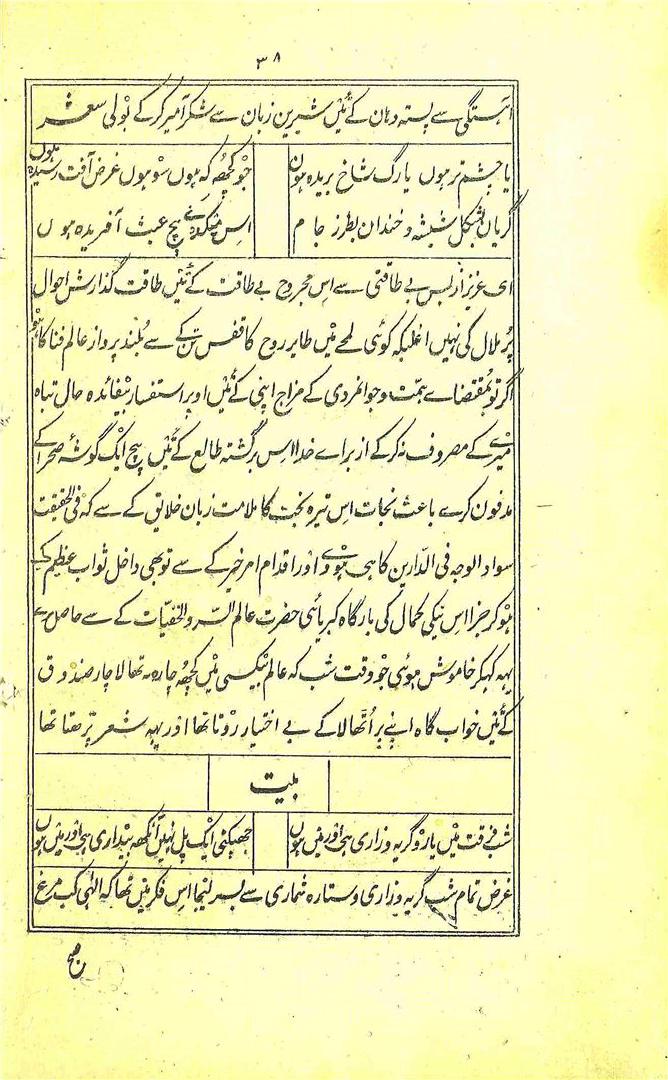 ۳۸
آہستگی سے پستہ دہان کے تئیں شیرین زبان سے شکر آمیز کر کے بولی شعر
یا چشم تر ہوں یا رگ شاخ بریدہ ہوں
جو کچھہ کہ ہوں سو ہوں غرض آفت رسیدہ ہوں
گریاں بشکل شیشہ و خنداں بطرز جام
اس میکدہ کے بیچ عبث آفریدہ ہوں
ای عزیز از بس بے طاقتی سے اس مجروح بے طاقت کے تئیں طاقت گذارش احوال
پر ملال کی نہیں اغلب کہ کوئی لمحے میں طایر روح کا قفس تن کے سے بلند پرواز عالم فنا کا ہو
اگر تو بمقتضاے ہمت و جوانمردی کے مزاج اپنی کے تئیں اوپر استفسار بیفائدہ حال تباہ
میرے کے مصروف نہ کر کے از براے خدا اس برگشتہ طالع کے تئیں بیچ ایک گوشۂ صحرا کے
مدفون کرے باعث نجات اس تیرہ بخت کا ملامت زبان خلایق کے سے کہ فی الحقیقت
سواد الوجہ فی الدارین کا ہی ہووے اور اقدام امر خیر کے سے تو بھی داخل ثواب عظیم کے
ہو کر جزا اس نیکی کمال کی بارگاہ کبریائی حضرت عالم السر و الخفیات کے سے حاصل کرے
یہہ کہکر خاموش ہوئی جو وقت شب کہ عالم بیکسی میں کچھہ چارہ نہ تھا لاچار صندوق
کے تئیں خواب گاہ اپنے پر اٹھا لا کے بے اختیار روتا تھا اور یہہ شعر پڑھتا تھا
بیت
شب فرقت میں یارو گریہ و زاری ہی اور میں ہوں
جھپکتی ایک پل نہیں آنکھہ بیداری ہی اور میں ہوں
غرض تمام شب گریہ و زاری و ستارہ شماری سے بسر لیجا اس فکر میں تھا کہ الہی کب مرغ
صبح